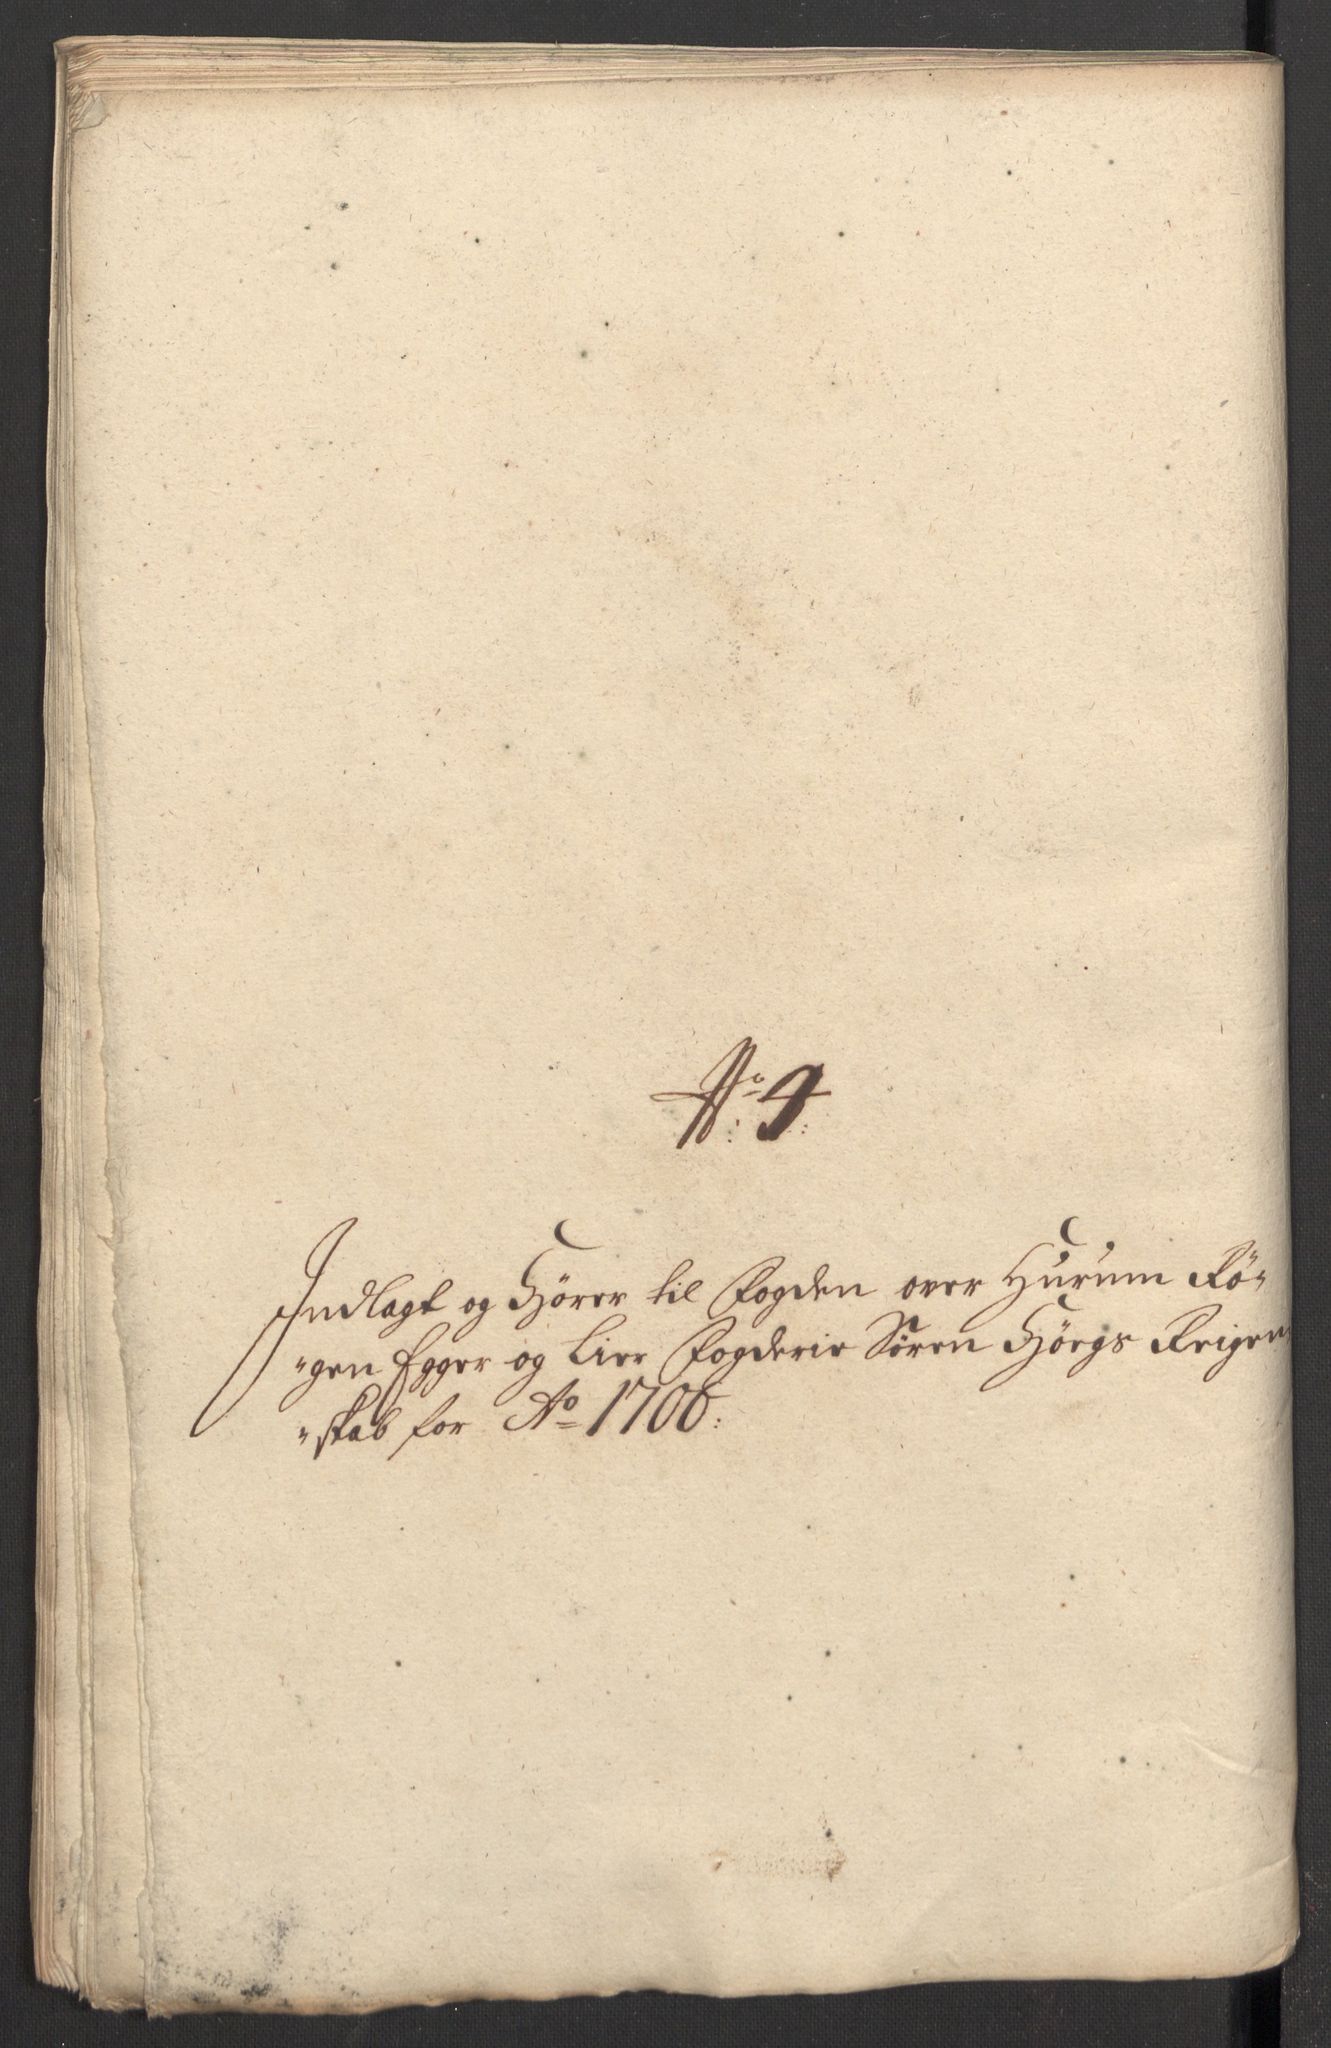 No: 9:
Indlagt og Hörer til Fogden over Hurum Rö-
"gen Egger og Lier Fogderie Sören Hiörgs Reigen-
"skab for Ao 1706: